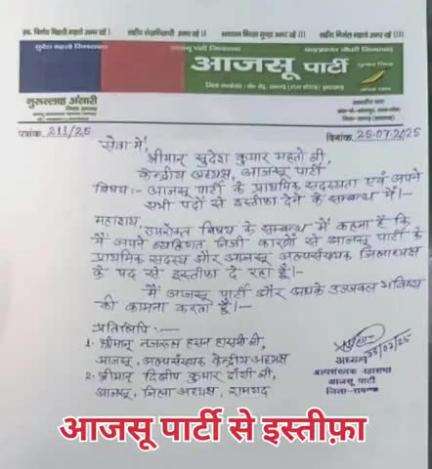 सुदेश महतो जिन्दाबाद
आजसू पार्टी जिन्दाबाद
आजसू पार्टी
गुरूल्लाह अंसारी
पत्रांक 211/25
दिनांक 25-07-2025
सेवा में,
श्रीमान् सुदेश कुमार महतो जी,
केन्द्रीय अध्यक्ष, आजसू पार्टी
विषय :- आजसू पार्टी के प्राथमिक सदस्यता एवं अपने
सभी पदों से इस्तीफा देने के सम्बन्ध में।-
महाशय,
उपरोक्त विषय के सम्बन्ध में कहना है कि
मैं अपने व्यक्तिगत निजी कारणों से आजसू पार्टी के
प्राथमिक सदस्य और आजसू अल्पसंख्यक जिलाध्यक्ष
के पद से इस्तीफा दे रहा हूँ।-
मैं आजसू पार्टी और आपके उज्जवल भविष्य
की कामना करता हूँ।-
प्रतिलिपि :-
1. श्रीमान् नजरूल हसन हासमी जी,
आजसू, अल्पसंख्यक केन्द्रीय अध्यक्ष
2. श्रीमान् दिलीप कुमार दाँगी जी,
आजसू, जिला अध्यक्ष, रामगढ़
25/07/25
अध्यक्ष
अल्पसंख्यक महासभा
आजसू पार्टी
जिला-रामगढ़
आजसू पार्टी से इस्तीफ़ा